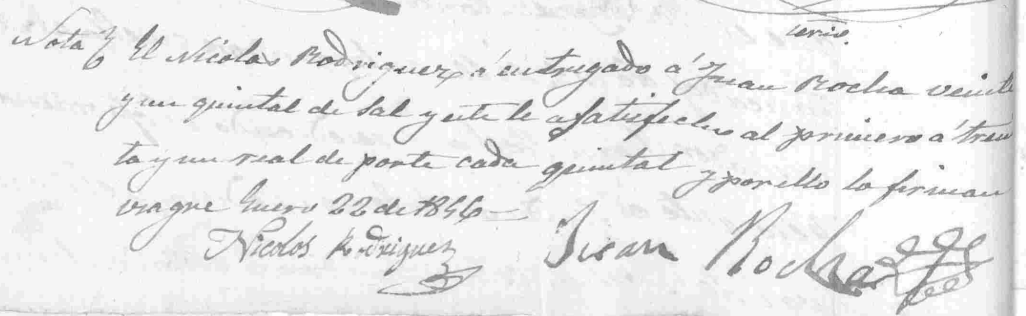 Nota El Nicolas Rodriguez á entregado á Juan Rocha veinte
y un quintal de sal y este le a satisfecho al primero á trein
ta y un real de porte cada quintal y por ello lo firman
Enero 22 de 1846
Nicolos Rodriguez Juan Rocha